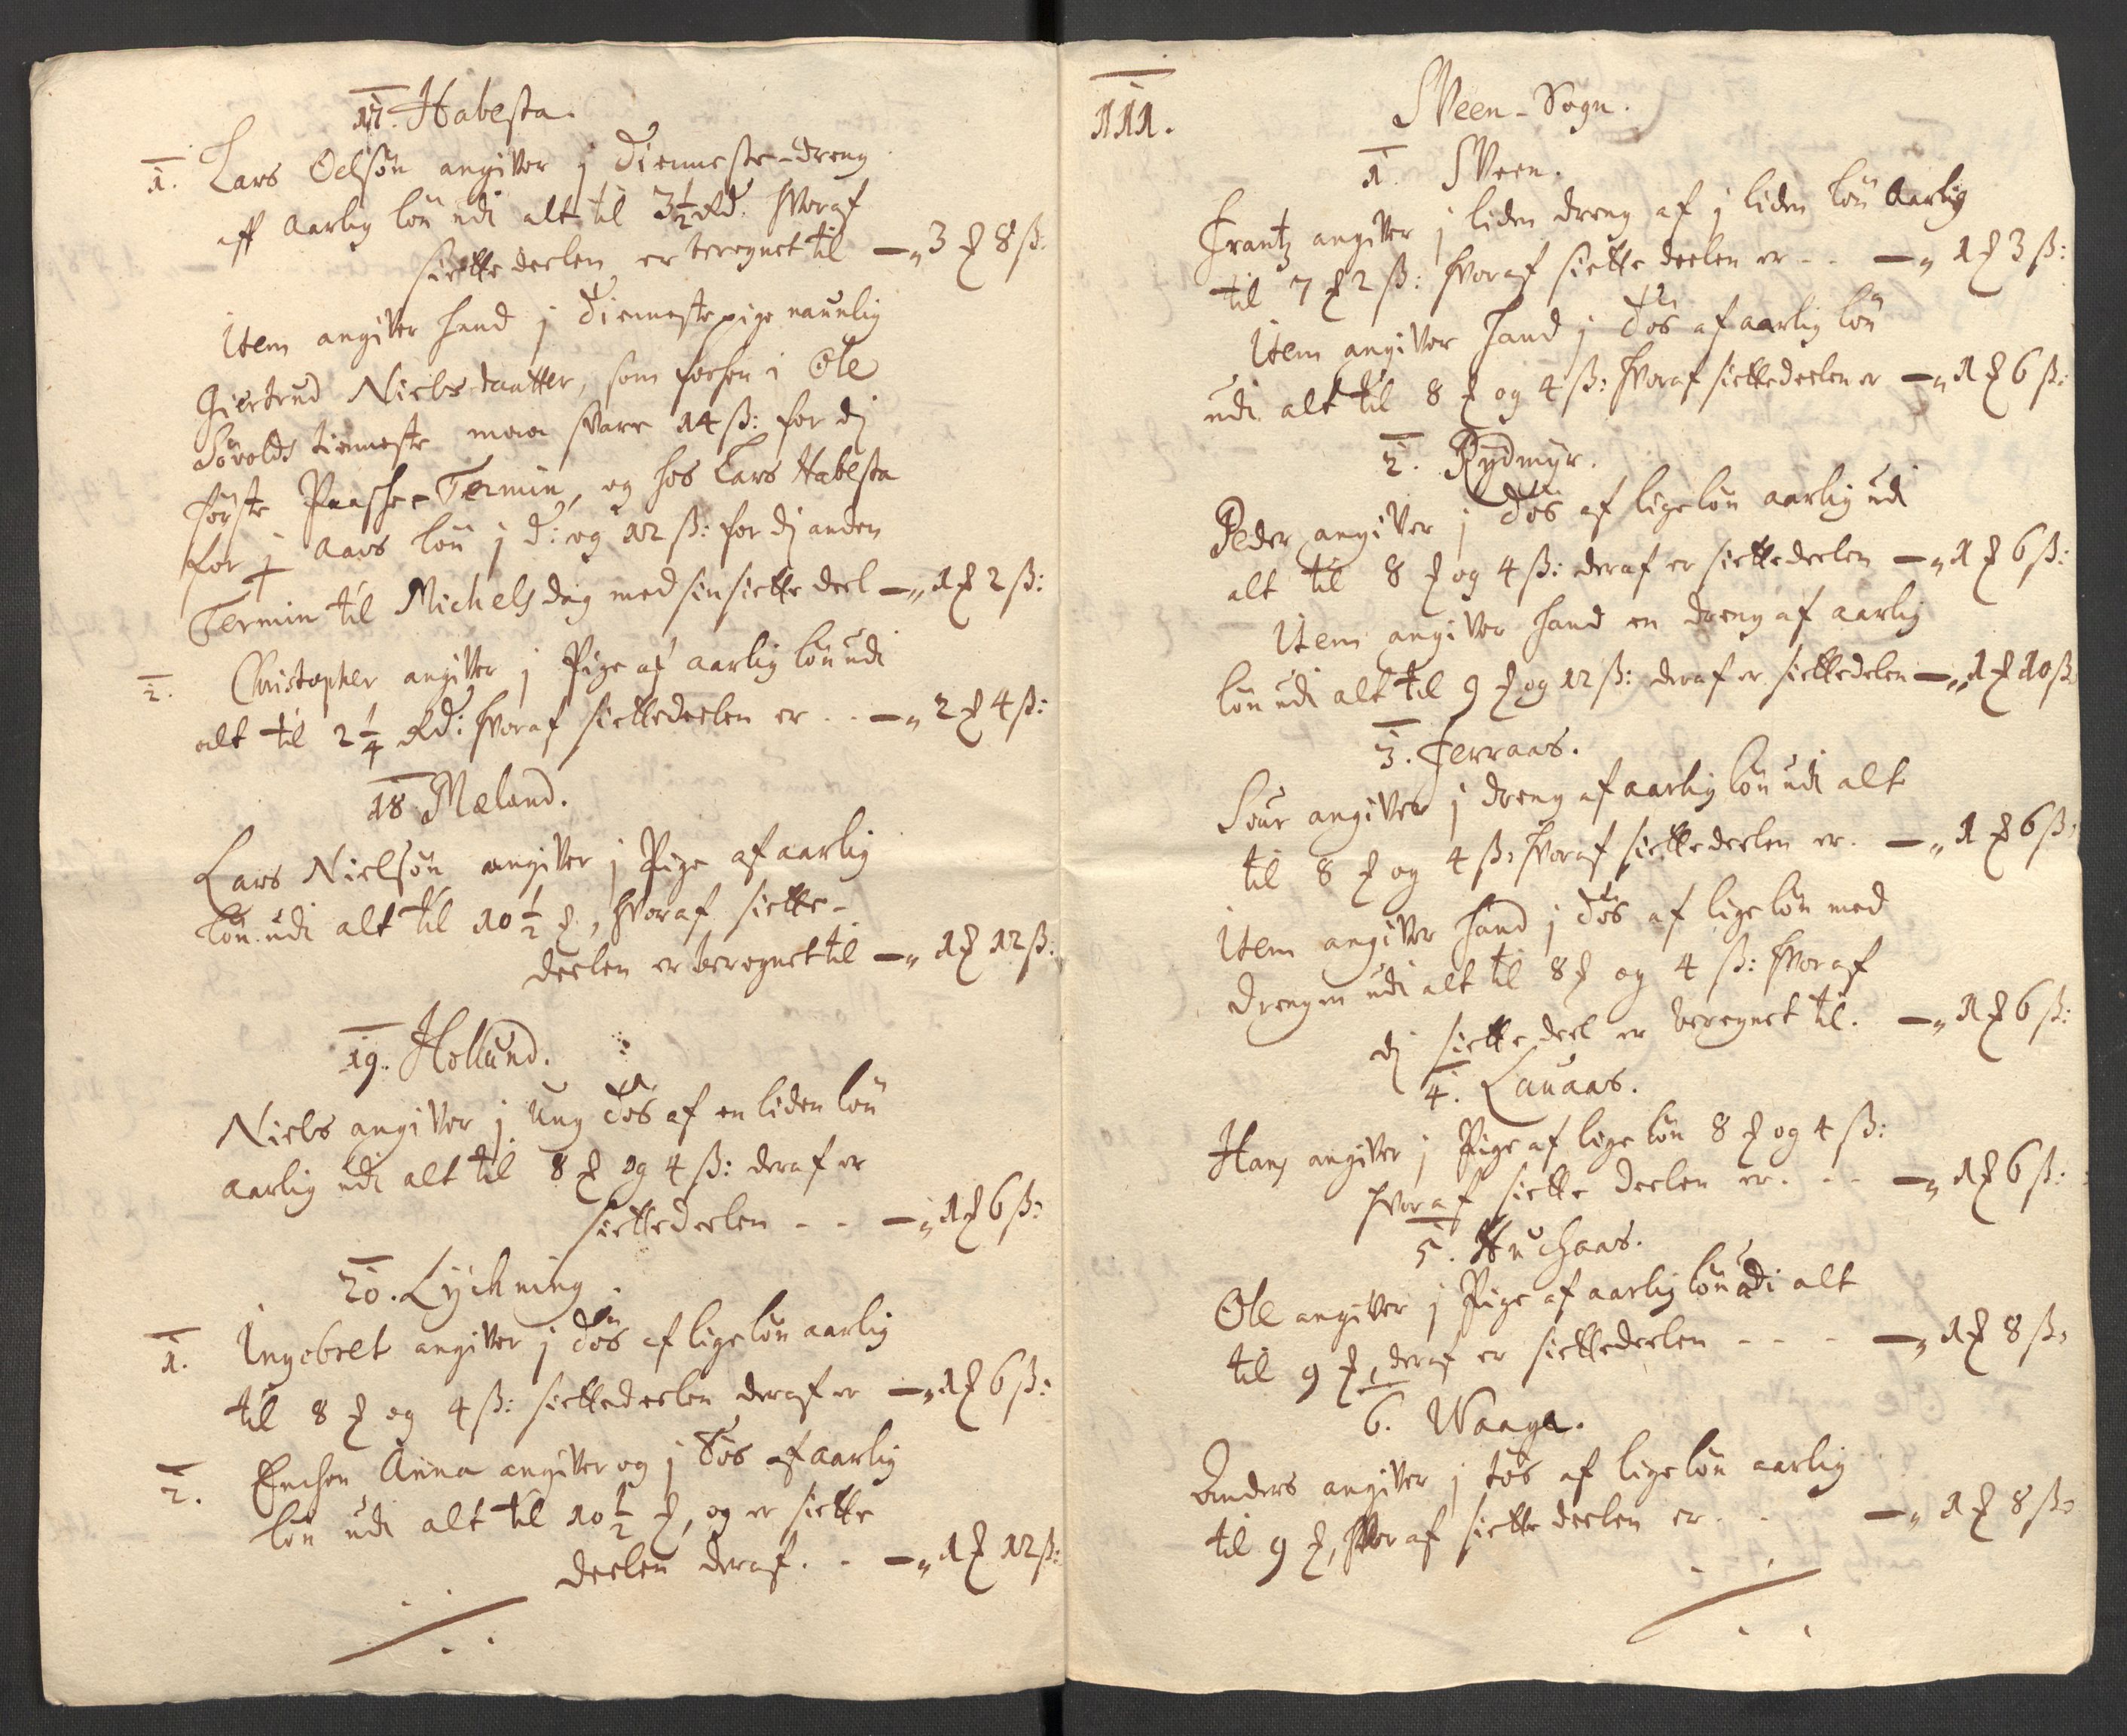 17. Habesta.
1. Lars Oelsøn angiver j Dienneste-dreng
aff aarlig løn udi alt til 3½ Rd. hvoraf
siette deelen er beregnet til — „ 3 ꝳ 8 ß:
Item angiver hand j Dienneste pige naunlig
Giertrud Niels-daatter, som forhen i Ole
tienneste maa svare 14 ß: for dj
første Paasche-Termin, og hos Lars Habesta
for j aars løn j d: og 12 ß: for dj anden
Termin til Michels dag med sin siette deel — „ 1 ꝳ 2 ß:
2. Christopher angiver j Pige af aarlig løn udi
alt til 2¼ Rd: hvoraf siettedeelen er . . — „ 2 ꝳ 4 ß:
18. Mæland.
Lars Nielsøn angiver j Pige af aarlig
løn udi alt til 10½ ꝳ, hvoraf siette-
deelen er beregnet til — „ 1 ꝳ 12 ß:
19. Hollund.
Niels angiver j Ung døs af en liden løn
aarlig udi alt til 8 ꝳ og 4 ß: deraf er
siettedeelen - - — „ 1 ꝳ 6 ß:
20. Lychning.
1. Ingebret angiver j døs af lige løn aarlig
til 8 ꝳ og 4 ß: siettedeelen deraf er — „ 1 ꝳ 6 ß:
2. Enchen Anna angiver og j døs af aarlig
løn udi alt til 10½ ꝳ, og er siette
deelen deraf. - — „ 1 ꝳ 12 ß:
111.
SVeen-Sogn.
1. SVeen.
Frantz angiver j liden dreng af j liden løn aarlig
til 7 ꝳ 2 ß: hvoraf siette deelen er - - — „ 1 ꝳ 3 ß:
Item angiver hand j døs af aarlig løn
udi alt til 8 ꝳ og 4 ß: hvoraf siettedeelen er — „ 1 ꝳ 6 ß:
2. Rydmyr.
Peder angiver j døs af lige løn aarlig udi
alt til 8 ꝳ og 4 ß: deraf er siettedeelen — „ 1 ꝳ 6 ß:
Item angiver hand en dreng af aarlig
løn udi alt til 9 ꝳ og 12 ß: deraf er siettedelen — „ 1 ꝳ 10 ß
3. Ferraas.
angiver j dreng af aarlig løn udi alt
til 8 ꝳ og 4 ß, hvoraf siette deelen er. — „ 1 ꝳ 6 ß,
Item angiver hand j døs af lige løn med
drengen udi alt til 8 ꝳ og 4 ß: hvoraf
dj siette deel er beregnet til. — „ 1 ꝳ 6 ß:
4. Lauaas.
Hans angiver j Pige af lige løn 8 ꝳ og 4 ß:
hvoraf siette deelen er. - - — „ 1 ꝳ 6 ß:
5.
Ole angiver j Pige af aarlig løn udi alt
til 9 ꝳ, deraf er siettedeelen - - - — „ 1 ꝳ 8 ß,
6. Waage.
Anders angiver j tøs af lige løn aarlig
til 9 ꝳ, hvoraf siette deelen er - - — „ 1 ꝳ 8 ß,